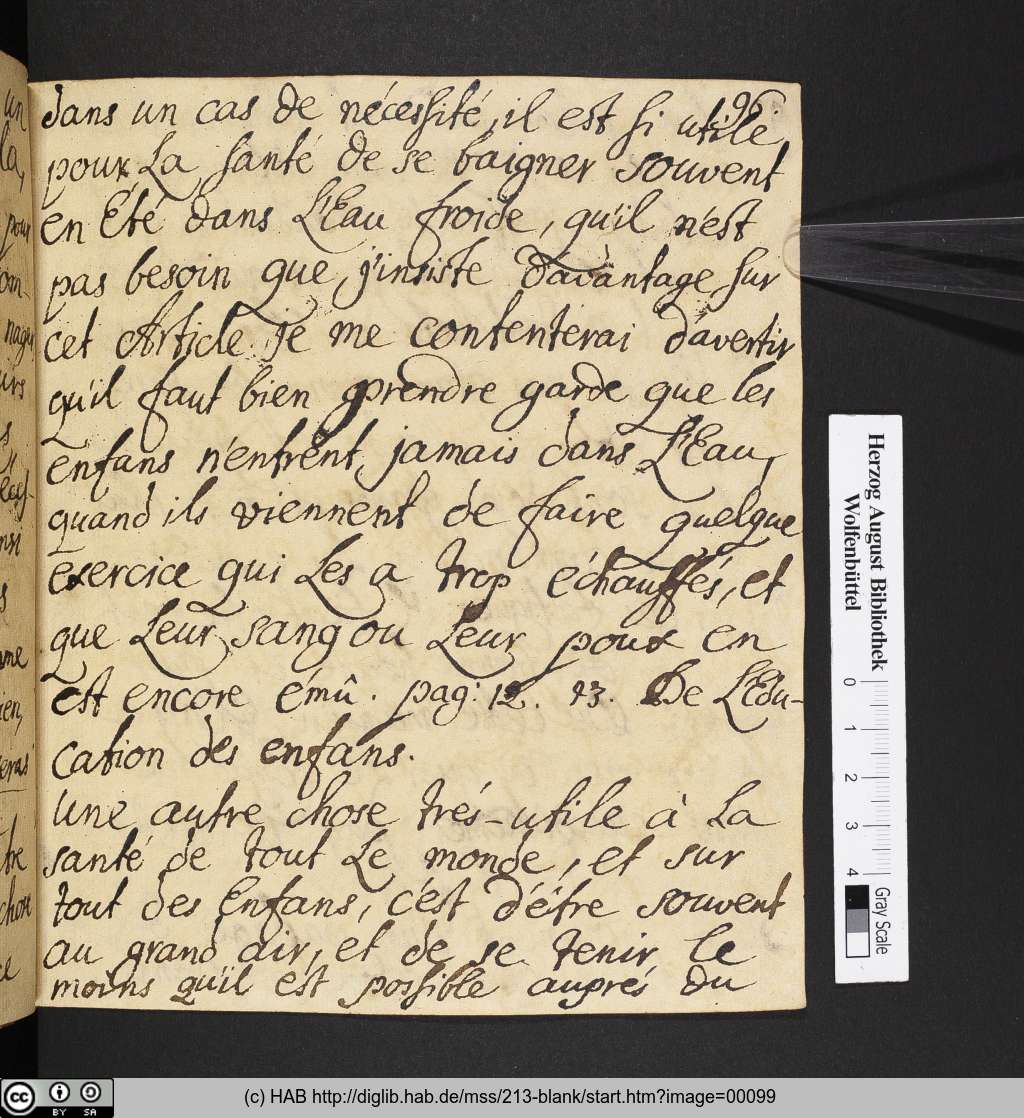 96
dans un cas de nécessité, il est si utile
pour La santé de se baigner souvent
en Été dans L'Eau froide, qu'il n'est
pas besoin que j'insiste d'avàntage sur
cet Article. je me contenterai d'avertir
qu'il faut bien prendre garde que les
enfans n'entrent jamais dans L'Eau,
quand ils viennent de faire quelque
exercice qui Les a trop échauffés, et
que Leur sang ou Leur poux en
est encore émû. pag: 12. 13. De L'Edu-
cation des enfans.
Une autre chose trés-utile à La
santé de tout Le monde, et sur
tout des Enfans, c'est d'être souvent
au grand air, et de se tenir le
moins qu'il est possible auprés du
un
la,
pour
om-
nager
irs
s
nsi
s
ien,
tre
chose
Herzog August Bibliothek
Wolfenbüttel
0 1 2 3 4
Gray Scale
cc BY SA
(c) HAB http://diglib.hab.de/mss/213-blank/start.htm?image=00099